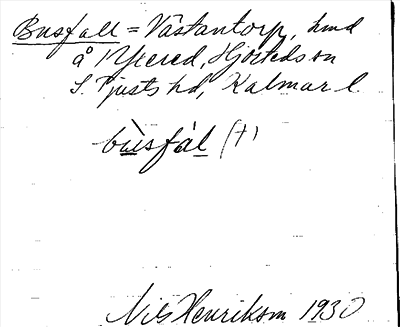 Busfall = Västantorp, hmd
å Ycered, Hjorteds sn
S. Tjusts hd, Kalmar l.
bùsfál (†)
Nils Henrikson 1930